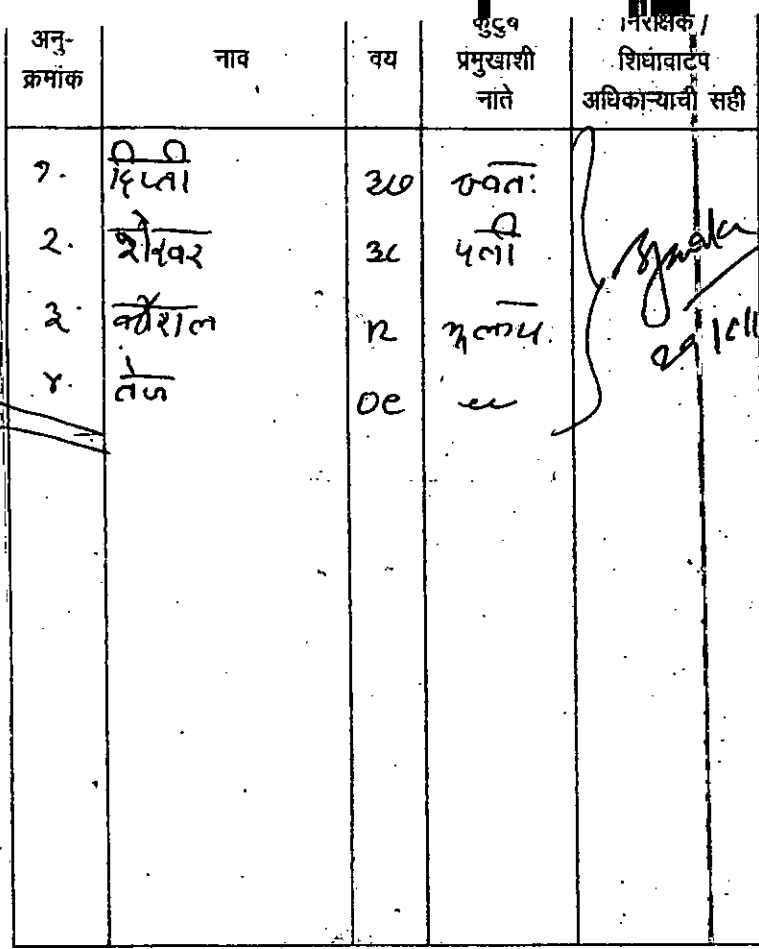 अनु-
क्रमांक
नाव
वय
कुटुंब
प्रमुखाशी
नाते
निरीक्षक /
शिधावाटप
अधिकाऱ्याची सही
१. दिप्ती ३७ स्वतः
२. शेखर ३८ पती
३. कौशल १२
४. तेज ०९ -"-